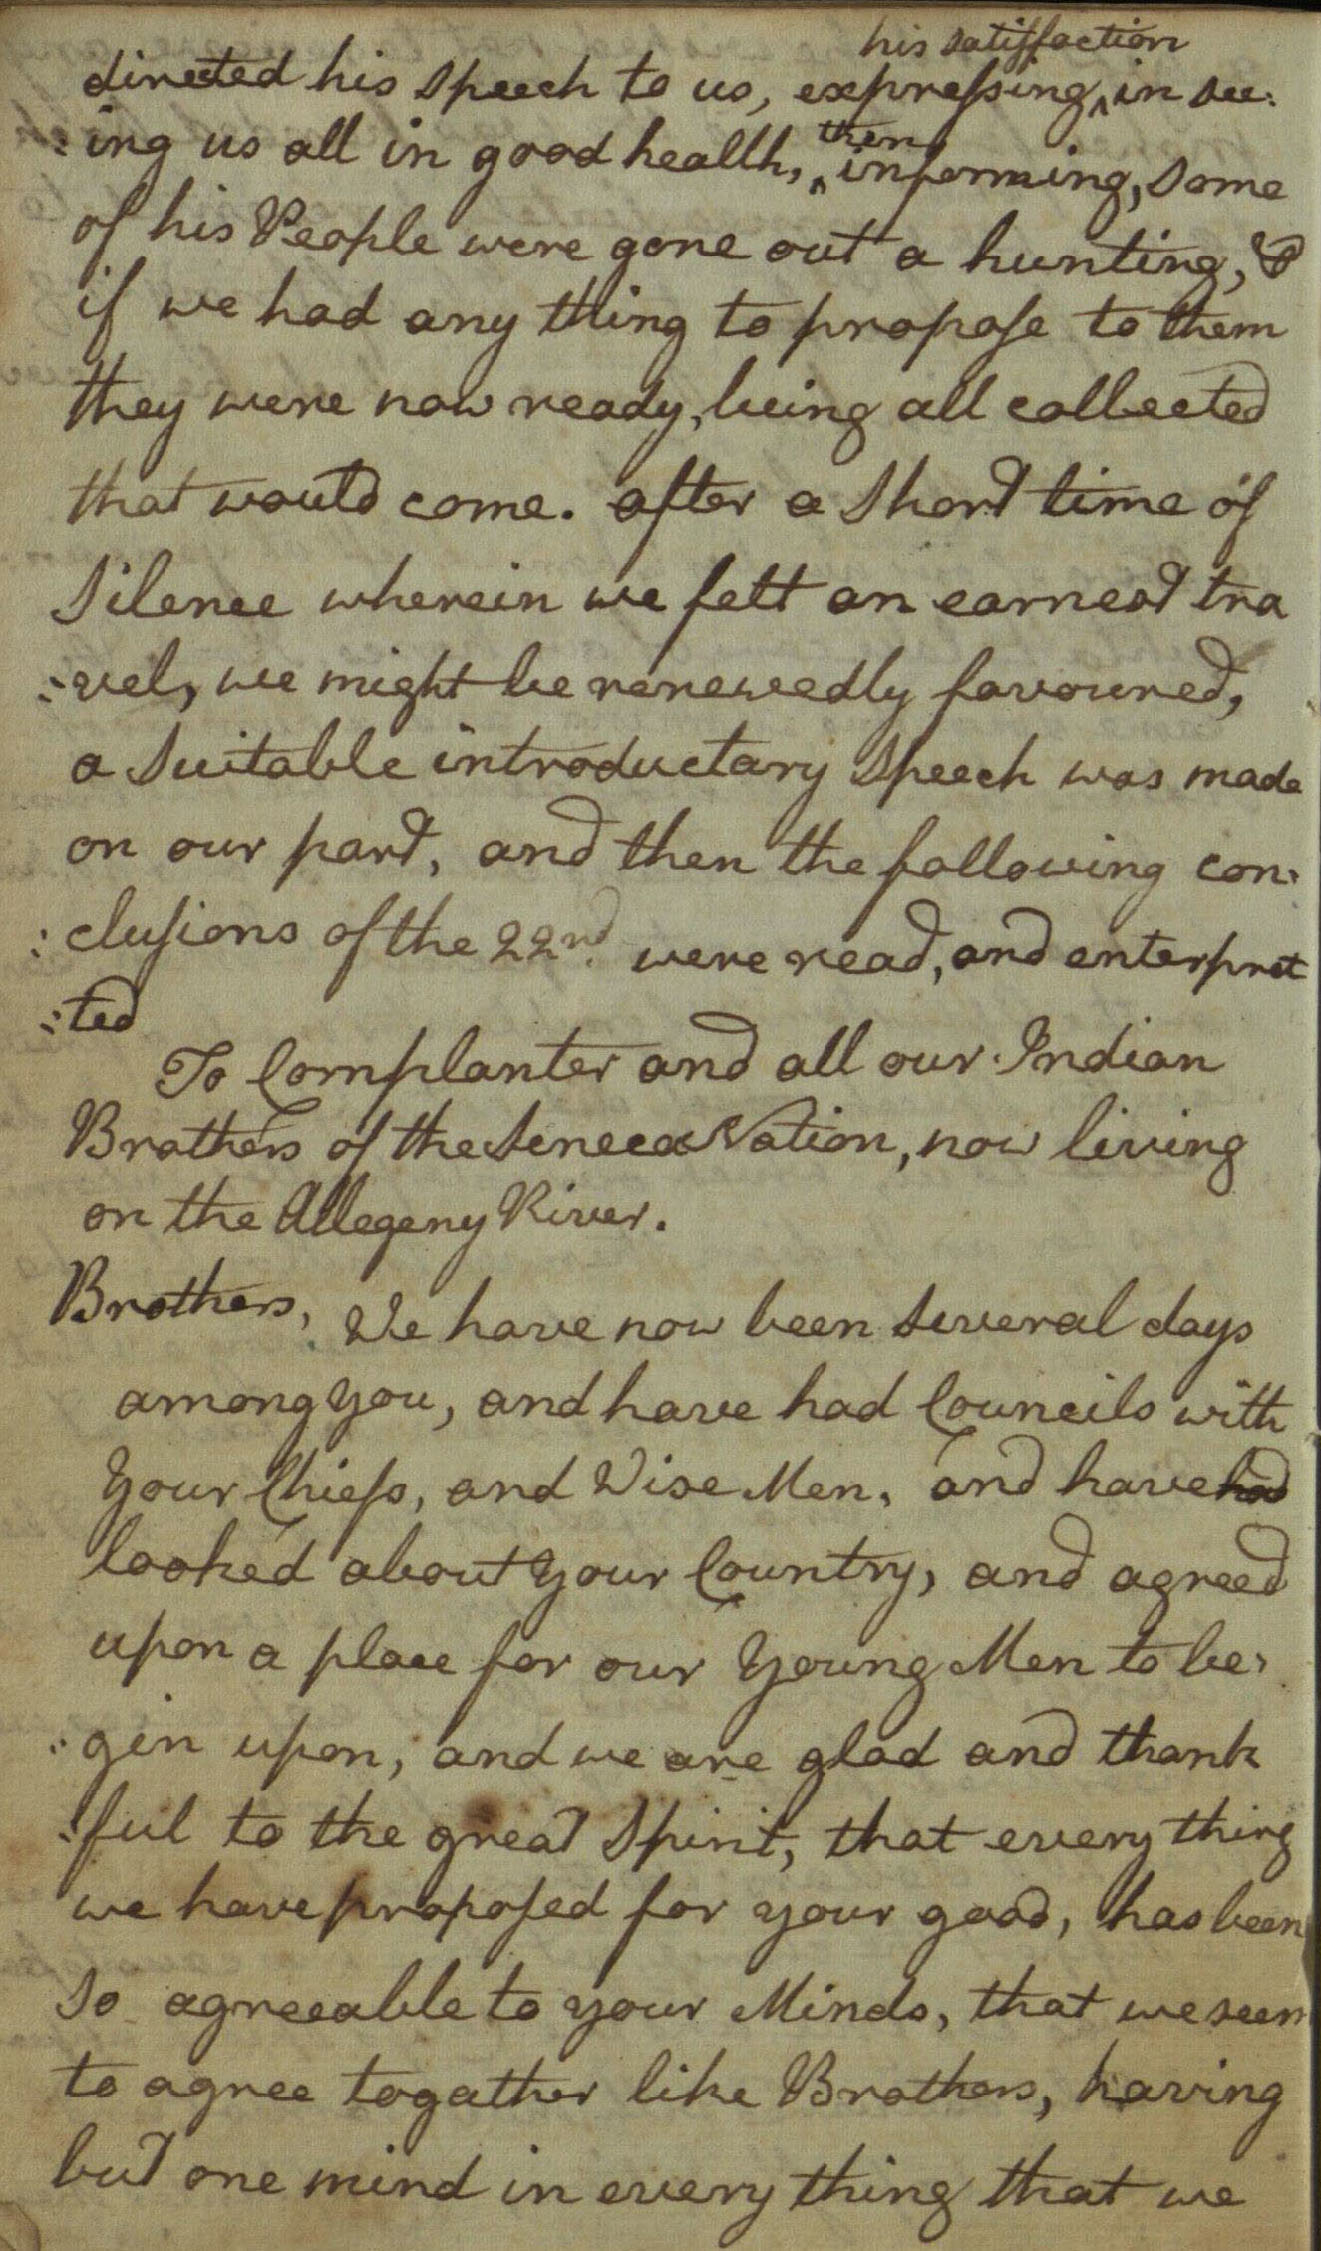 his satisfaction
directed his Speech to us, expressing ‸ in see:
then
:ing us all in good health, ‸ informing, Some
of his People were gone out a hunting, &
if we had any thing to propose to them
they were now ready, being all collected
that would come. after a Short time of
Silence wherein we felt an earnest tra
:vel, we might be renewedly favoured,
a Suitable introductary Speech was made
on our part, and then the following con:
:clusions of the 22nd. were read, and enterpret
:ted
To Cornplanter and all our Indian
Brothers of the Seneca Nation, now living
on the Allegeny River.
Brothers, We have now been Several days
among you, and have had Councils with
Your Chiefs, and Wise Men, and have had
looked about Your Country, and agreed
upon a place for our Young Men to be:
:gin upon, and we are glad and thank
:ful to the great Spirit, that every thing
we have proposed for your good, has been
So agreeable to your Minds, that we seem
to agree togather like Brothers, having
but one mind in every thing that we